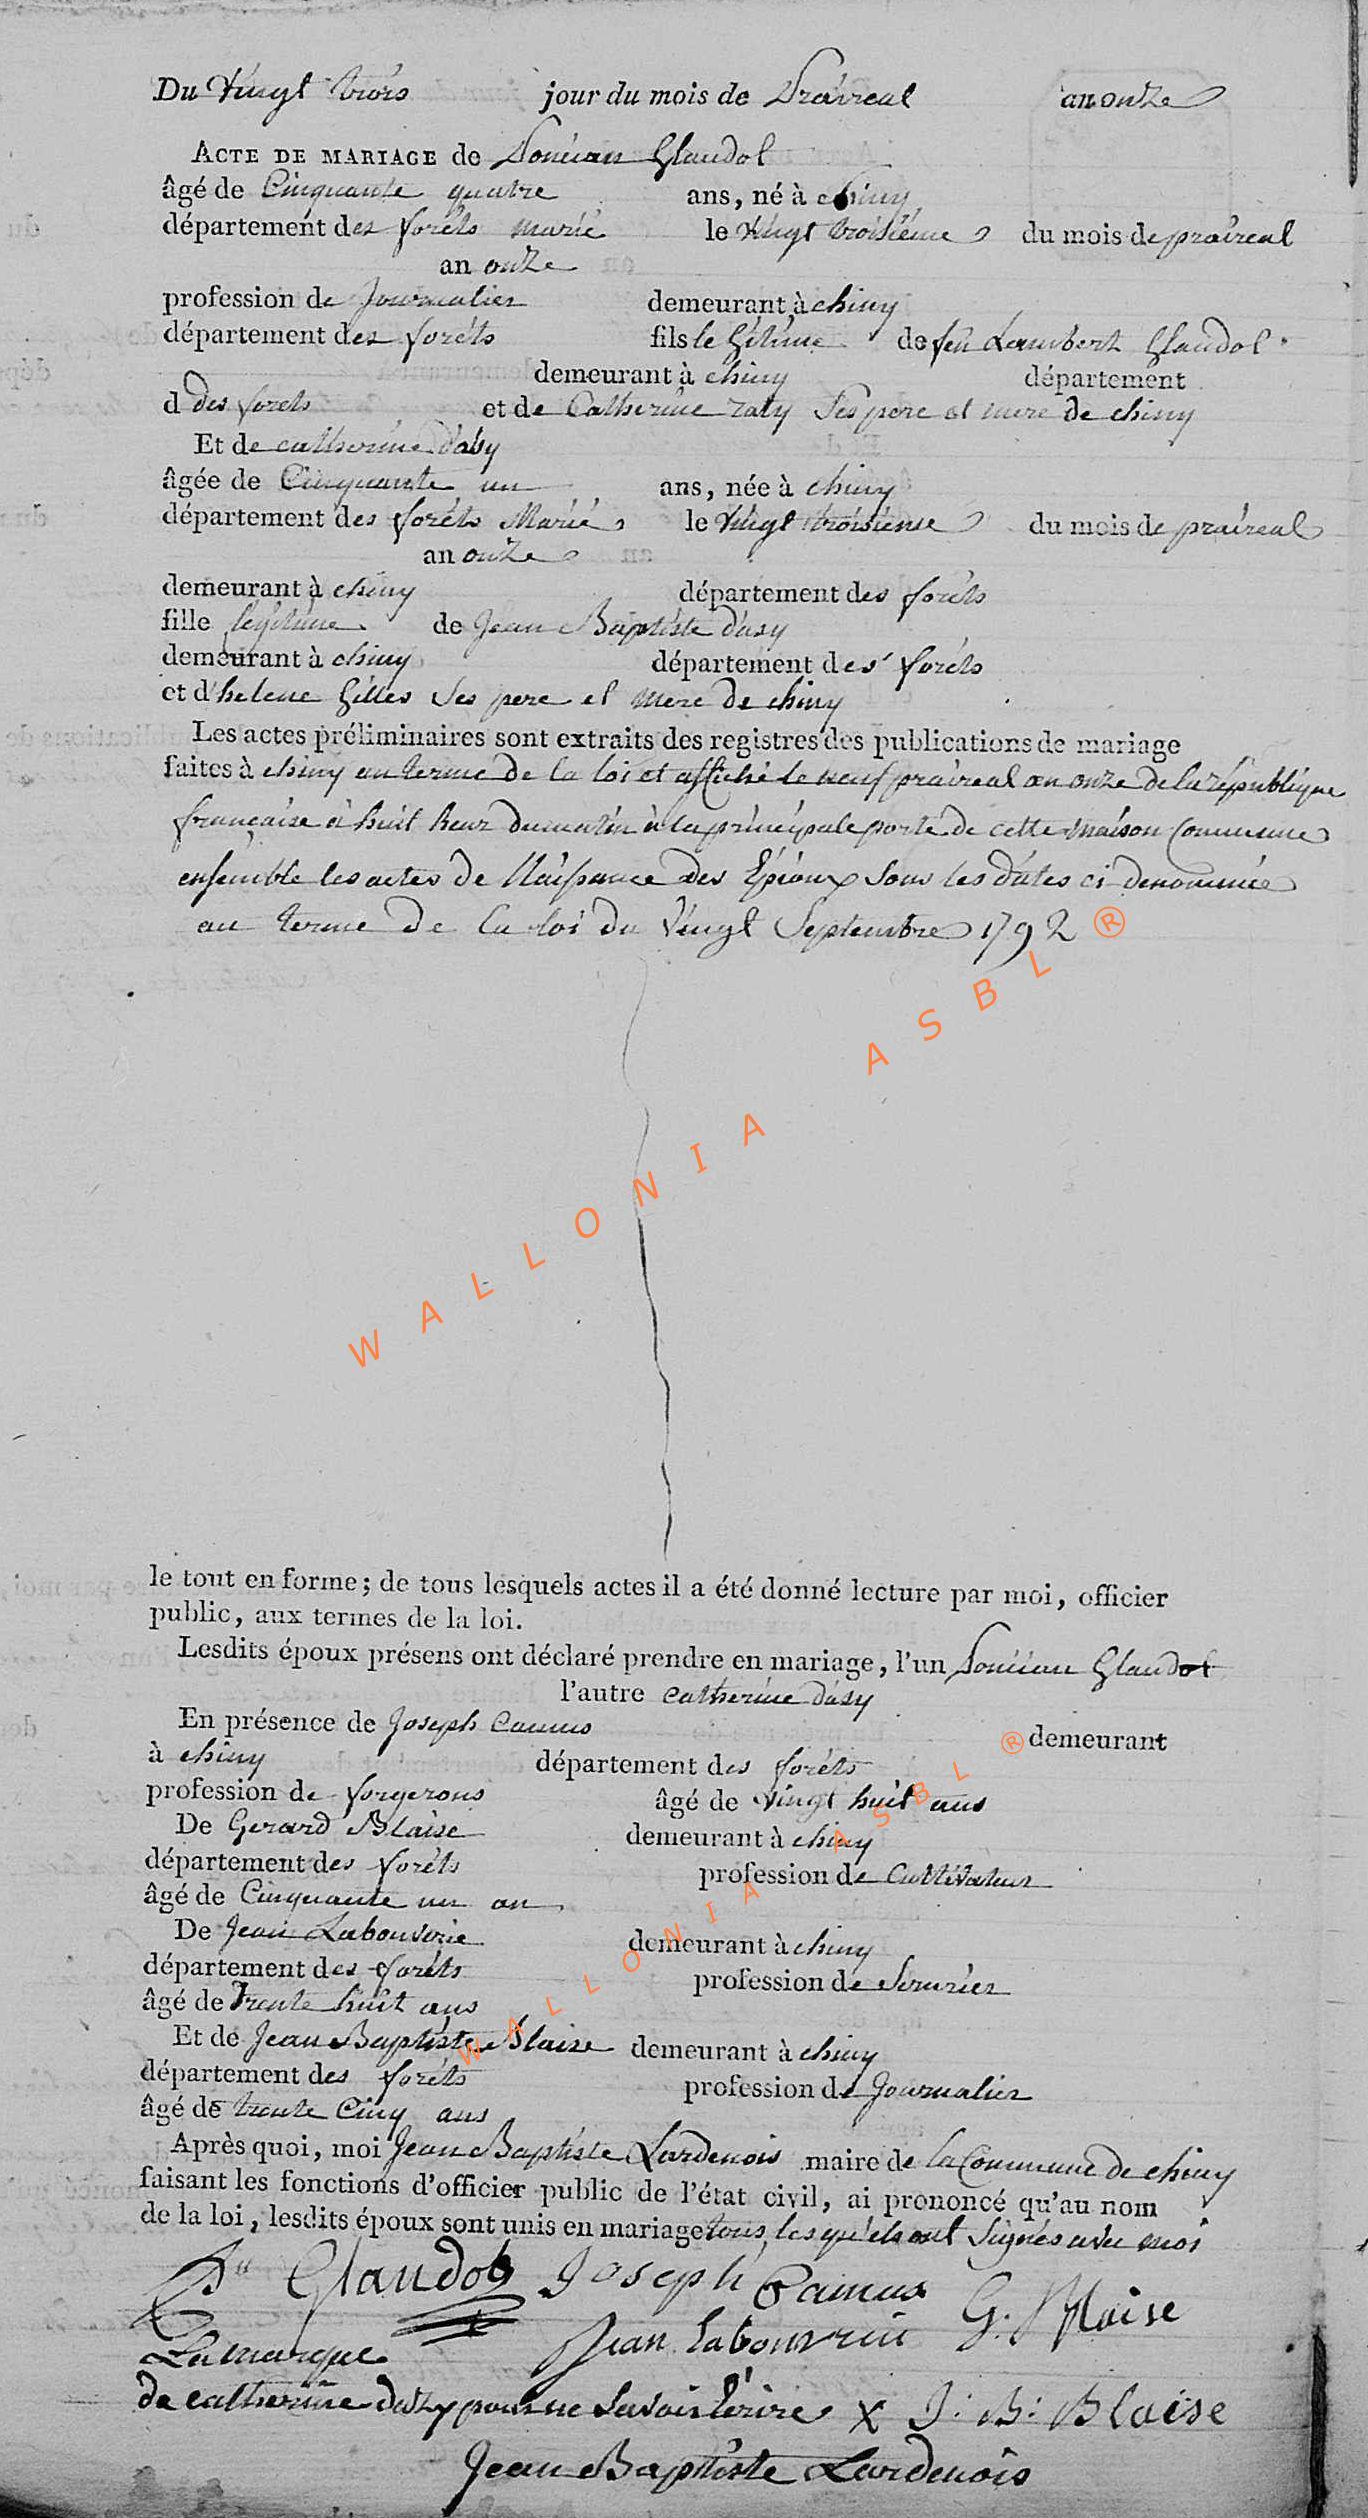 Du Vingt trois jour du mois de Prairéal an onze
ACTE DE MARIAGE de Glaudot
âgé de Cinquante quatre ans, né à chiny
département des foréts marié le Vingt troisiéme du mois de prairéal
an onze
profession de Journalier demeurant à chiny
département des foréts fils le Gitime de feu Lambert Glaudot
demeurant à chiny département
d des forets et de Catherine Ses pere et mere de chiny
Et de catherine dasy
âgée de Cinquante un ans, née à chiny
département des foréts Marié le Vingt troisiéme du mois de prairéal
an onze
demeurant à chiny département des foréts
fille legitime de Jean Baptiste dasy
demeurant à chiny département des foréts
et d'helene Gilles Ses pere et mere de chiny
Les actes préliminaires sont extraits des registres des publications de mariage
faites à chiny au terme de la loi et affiché le neuf prairéal an onze de la républiqne
française à huit heur du matin à la principale porte de cette maison Commune
ensemble les actes de Naissance des Epioux sous les dates ci denommée
au terme de la loi du Vingt Septembre 1792 ®
WALLONIA ASBL
le tout en forme; de tous lesquels actes il a été donné lecture par moi, officier
public, aux termes de la loi.
Lesdits époux présens ont déclaré prendre en mariage, l'un Glaudot
l'autre catherine dasy
En présence de Joseph Camus ® demeurant
à chiny département des foréts
profession de forgerons âgé de vingt huit ans
De Gerard Blaise demeurant à chiny
département des foréts profession de Cultivateur
âgé de Cinquante un an
De Jean Labouverie demeurant à chiny
département des foréts profession de Serurier
âgé de Trente huit ans
Et de Jean Baptiste Blaise demeurant à chiny
département des foréts profession de Journalier
âgé de trente Cinq ans
WALLONIA ASBL
Après quoi, moi Jean Baptiste Lardenois maire de la Commune de chiny
faisant les fonctions d'officier public de l'état civil, ai prononcé qu'au nom
de la loi, lesdits époux sont unis en mariage tous lesquels ont Signés avec moi
Glaudot Joseph Camus G. Blaise
La marque Jean Labouverie
de catherine dasy pour ne Savoir Ecrire X J: B: Blaise
Jean Baptiste Lardenois